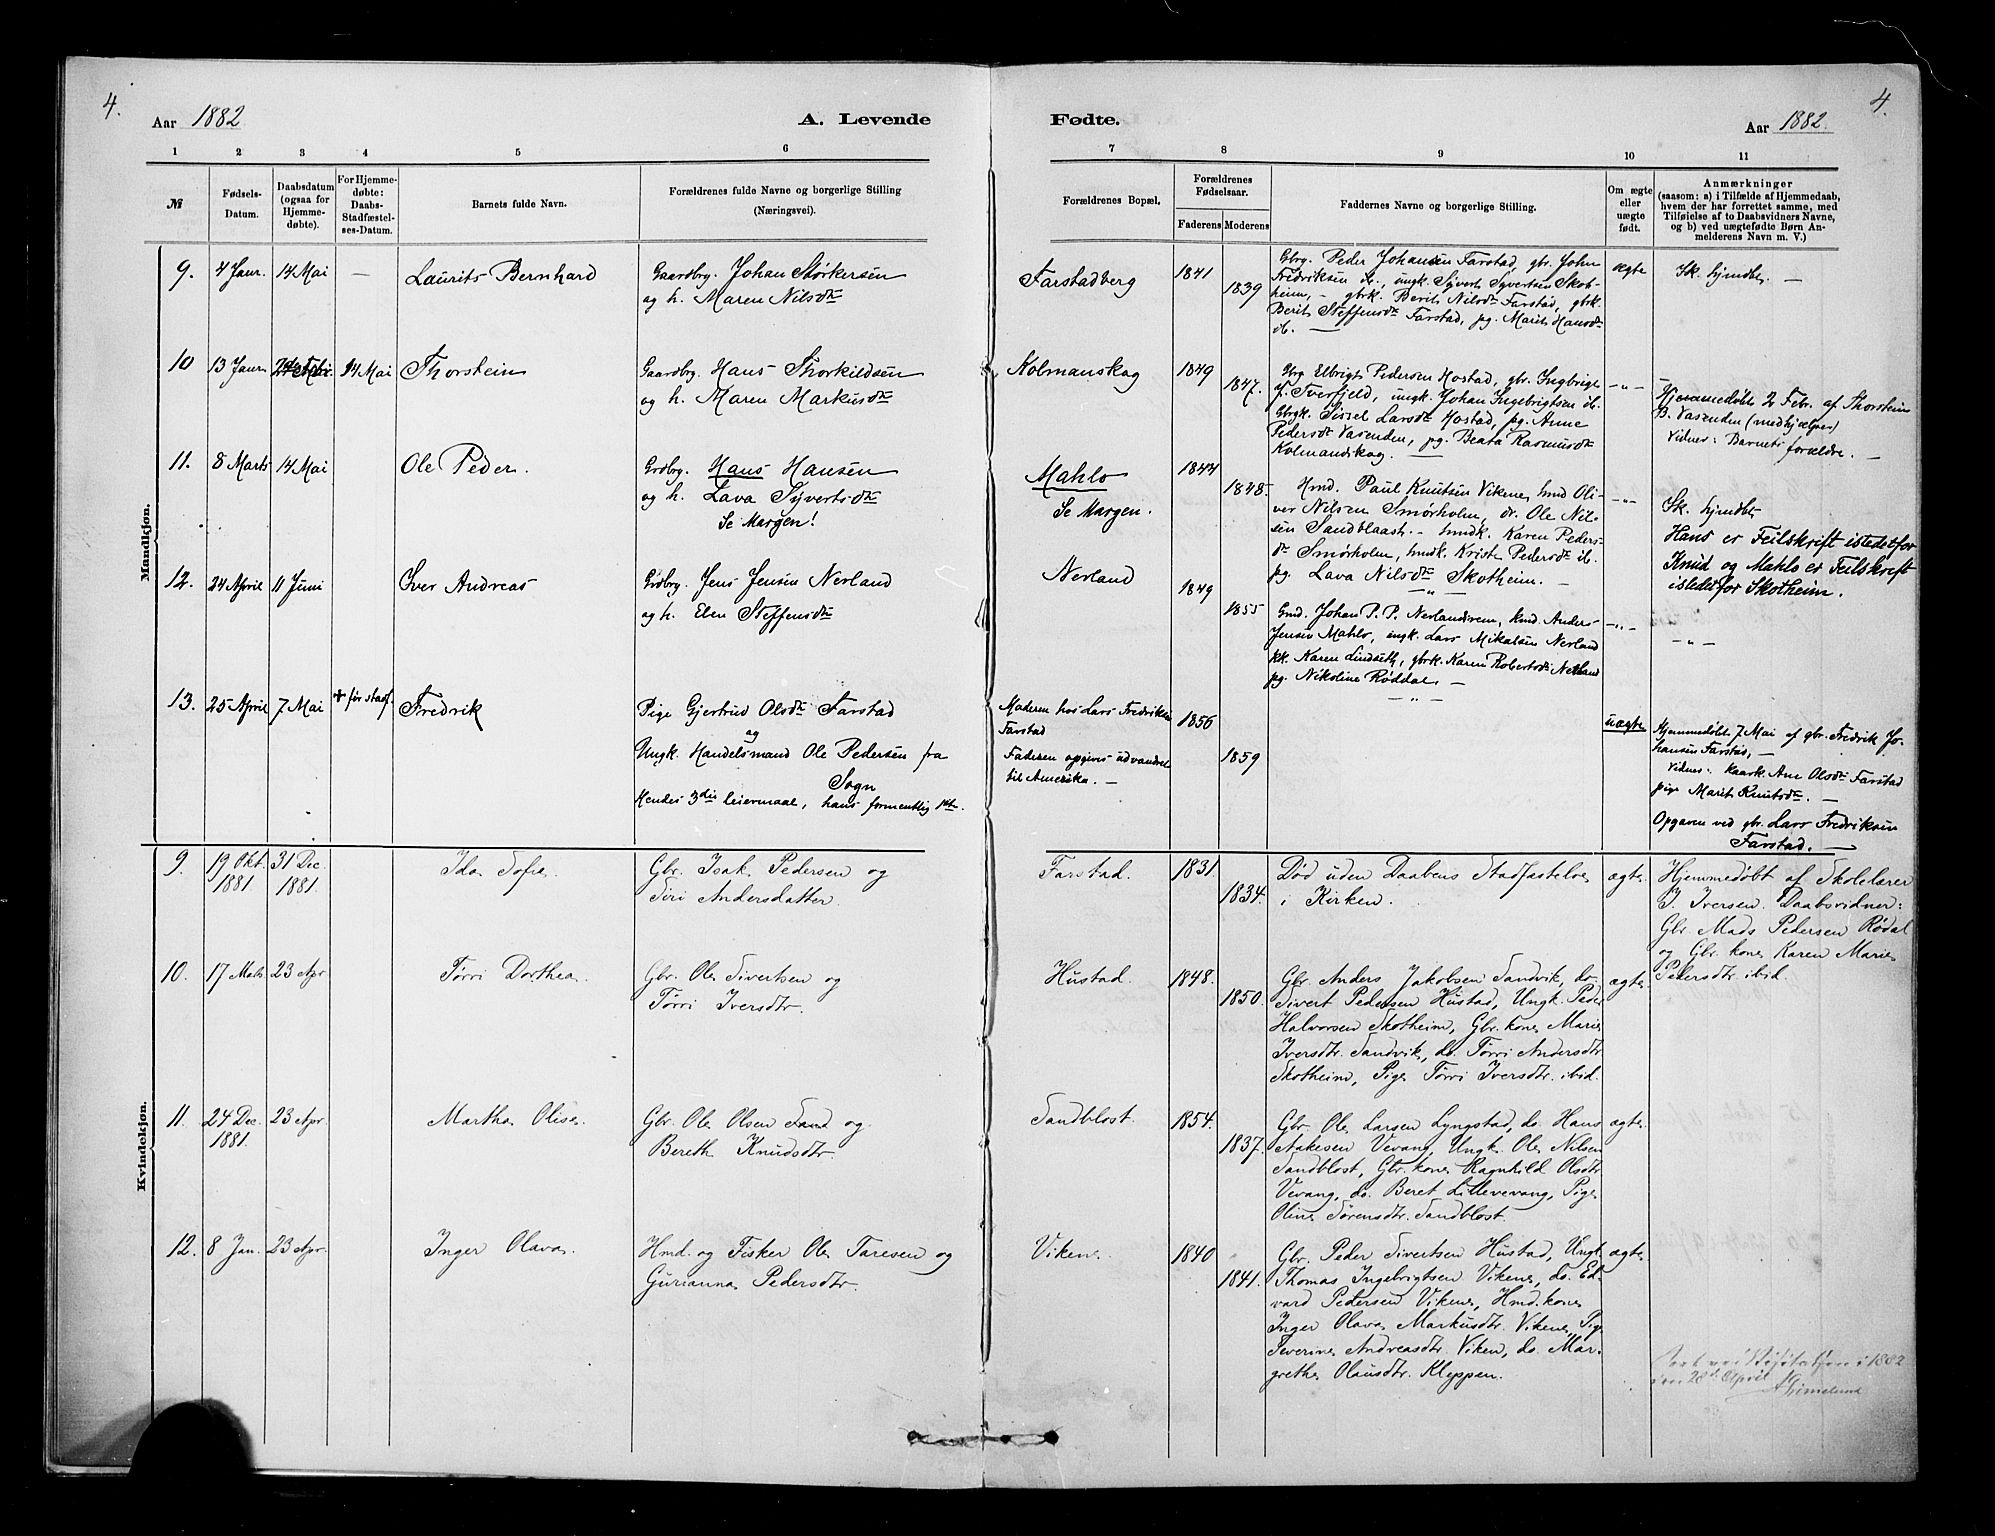 4.
4.
Aar 1882
A. Levende Fødte.
Aar 1882.
1 2 3 4 5 6 7 8 9 10 11
№
Fødsels-
Datum.
Daabsdatum
(ogsaa for
Hjemme-
døbte).
For Hjemme-
døbte:
Daabs-
Stadfæstel-
ses-Datum.
Barnets fulde Navn.
Forældrenes fulde Navne og borgerlige Stilling
(Næringsvei).
Forældrenes Bopæl.
Forældrenes
Fødselsaar.
Faderens Moderens
Faddernes Navne og borgerlige Stilling.
Om ægte
eller
uægte
født.
Anmærkninger
(saasom: a) i Tilfælde af Hjemmedaab,
hvem der har forrettet samme, med
Tilføielse af to Daabsvidners Navne,
og b) ved uægtefødte Børn An-
melderens Navn m. V.)
Mandkjøn.
9. 4 Janr. 14 Mai — Laurits Bernhard
Gaardbr. Johan Størkersen
og h. Maren Nilsdtr
Farstadberg
1841
1839
Gbrg. Peder Johansen Farstad, gbr. John
Fredriksen ib., ungk. Syvert Syvertsen Skot-
heim, – gbrk. Berit Nilsdtr Farstad, gbrk.
Berit Steffensdtr Farstad, pg. Marit Hansdtr
ib. —
ægte
Sk. hjmdbt. —
10 13 Janr 14 Mai Thorstein
Gaardbrg. Hans Thorkildsen
og h. Maren Markusdtr
Kolmanskog
1849
1847.
Gbrg Elbrigt Pedersen Hostad, gbr. Ingbrigt
J. Tverfjeld, ungk. Johan Ingebrigtsen ib.
Gbrgk. Sissel Larsdtr Hostad, pg. Anne
Pedersdtr Vasenden, pg. Beata Rasmusdtr
Kolmandskog. —
–"–
Hjemmedøbt 2 Febr. af Thorstein
B. Vasenden (medhjælper)
Vidner: Barnets forældre. —
11. 8 Marts 14 Mai Ole Peder.
Grdbrg. Hans Hansen
og h. Lava Syvertsdtr
Se Margen!
Mahlo
Se Margen.
1844
1848.
Hmd. Paul Knutsen Vikene, hmd Oli-
ver Nilsen Smørholm, dr. Ole Nil-
sen Sandblaast. – hmdk. Karen Peders-
dtr Smørholm, hmdk. Kristi Pedersdtr ib.
pg. Lava Nilsdtr Skotheim. —
–"–
Sk. hjmdbt
Hans er Feilskrift istedetfor
Knud og Mahlo er Feilskrift
istedetfor Skotheim.
12. 24 April 11 Juni Iver Andreas
Grdbrg. Jens Jensen Nerland
og h. Elen Steffensdtr
Nerland
1849
1855
Gmd. Johan P. P. Nerlandsvem, kmd Anders
Jensen Mahlo, ungk. Lars Mikalsen Nerland
kk. Karen Lindseth, gbrk. Karen Robertsdtr Nerland
pg. Nikoline Røddal. —
–"–
–"–
13. 25 April 7 Mai + før stadf. Fredrik
Pige Gjertrud Olsdtr Farstad
og
Ungk. Handelsmand Ole Pedersen fra
Sogn
Hendes 3die leiermaal, hans formentlig 1ste.
Moderen hos Lars Fredriksen
Farstad
Faderen opgives udvandret
til Amerika. —
1856
1859
uægte
Hjemmedøbt 7 Mai af gbr. Fredrik Jo-
hansen Farstad, —
Vidner: kaark Ane Olsdtr Farstad
pige Marit Knutsdtr. —
Opgaven ved gbr. Lars Fredriksen
Farstad. —
Kvindekjøn.
9. 19 Okt. 1881. 31 Dec. 1881. Ida Sofie.
Gbr. Isak Pedersen og
Siri Andersdatter.
Farstad.
1831
1834.
Død uden Daabens Stadfæstelse
i Kirken.
ægte
Hjemmedøbt af Skolelærer
I. Iversen. Daabsvidner:
Gbr. Mads Pedersen Rødal
og Gbr. kone Karen Marie
Pedersdtr. ibid.
10. 17 Mts 23 Apr Tørri Dorthea.
Gbr. Ole Sivertsen og
Tørri Iversdtr.
Hustad.
1848.
1850.
Gbr. Anders Jakobsen Sandvik, do.
Sivert Pedersen Hustad, Ungk. Peder
Halvorsen Skotheim, Gbr. kone Marie
Iversdtr. Sandvik, do. Tørri Andersdtr.
Skotheim, Pige Tørri Iversdtr. ibid.
ægte
11. 24 Dec. 1881. 23 Apr Martha Olise.
Gbr. Ole Olsen Sand og
Bereth Knudsdtr.
Sandblost.
1854.
1837.
Gbr. Ole Larsen Lyngstad, do. Hans
Aakesen Vevang, Ungk. Ole Nilsen
Sandblost, Gbr. kone Ragnhild Olsdtr
Vevang, do. Beret Lillevevang, Pige
Oline Sørensdtr. Sandblost.
ægte
12. 8 Jan. 23 Apr. Inger Olava.
Hmd. og Fisker Ole Taresen og
Gurianna Pedersdtr.
Vikene.
1840
1841.
Gbr. Peder Sivertsen Hustad, Ungk.
Thomas Ingebrigtsen Vikene, do. Ed-
vard Pedersen Vikene, Hmd. kone
Inger Olava Markusdtr. Vikene, Pige
Severine Andreasdtr. Viken, do. Mar-
grethe Olausdtr. Kleppen.
ægte
Visitatsen i 1882
den 28d. April